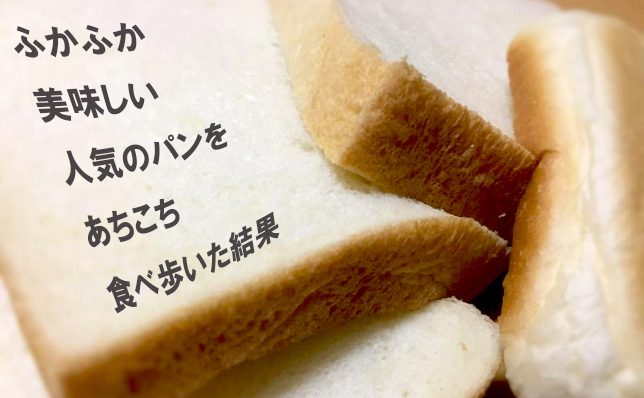 ふかふか
美味しい
人気のパンを
あちこち
食べ歩いた結果